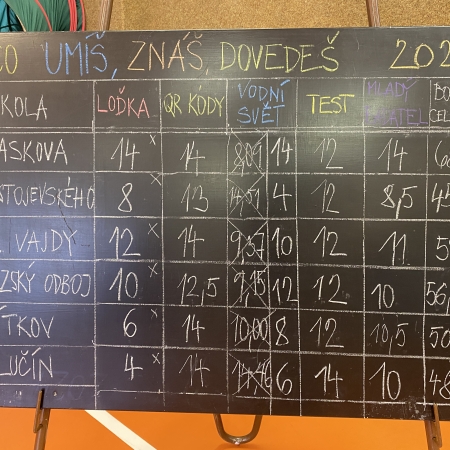 CO UMÍŠ, ZNÁŠ, DOVEDEŠ 202
KOLA LOĎKA QR KÓDY VODNÍ SVĚT TEST MLADÝ BO CEL
ASKOVA 14 x 14 14 12 14
STOJEVSKÉHO 8 x 13 4 12 8,5 45
VAJDY 12 x 14 9,37 10 12 11 5
ZSKÝ ODBOJ 10 x 12,5 9,15 12 12 10 56,
ÍTKOV 6 x 14 10,00 8 12 10,5 50
LUČÍN 4 x 14 6 14 10 48